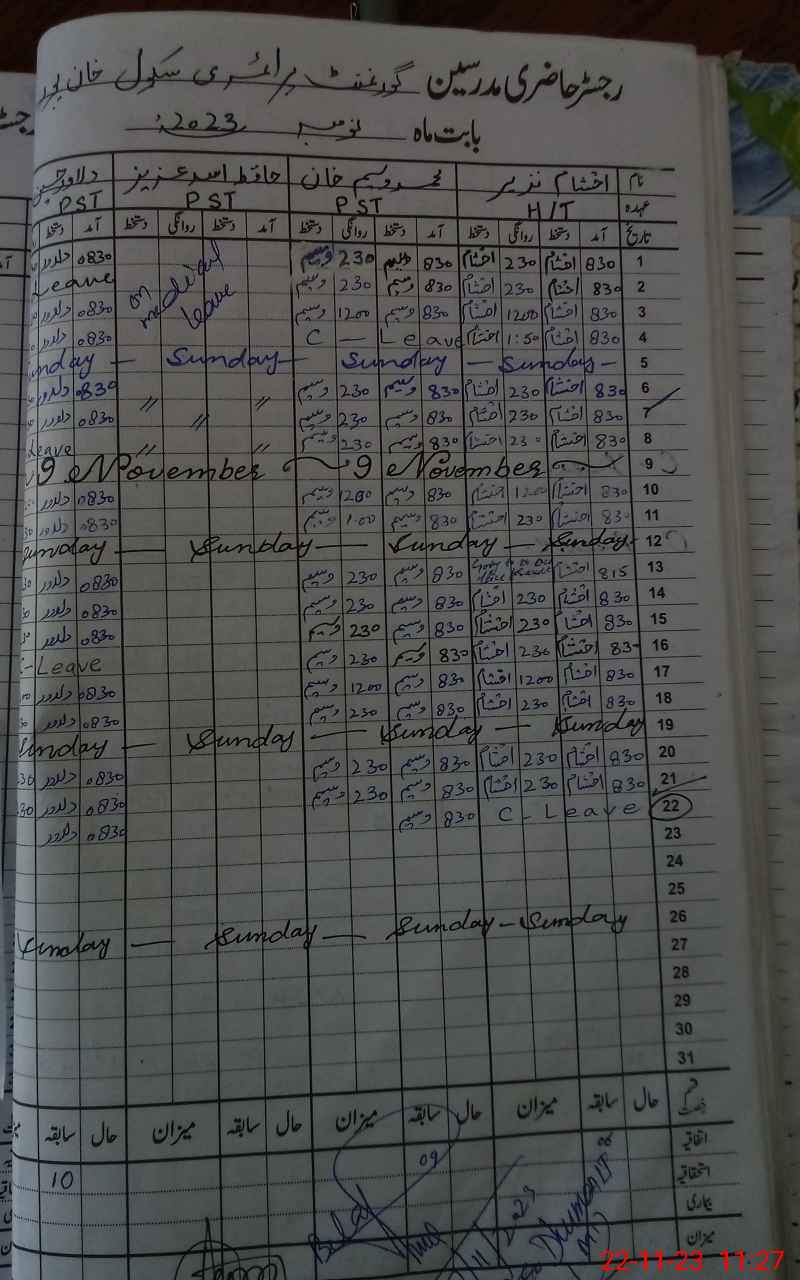 رجسٹر حاضری مدرسین گورنمنٹ پرائمری سکول خان
بابت ماہ نومبر 2023ء
نام احتشام نذیر محمد وسیم خان حافظ اسد عزیز دلاور حسین
عہدہ H/T PST PST PST
تاریخ آمد دستخط روانگی دستخط آمد دستخط روانگی دستخط آمد دستخط روانگی دستخط آمد دستخط
1 830 احتشام 230 احتشام 830 وسیم 230 وسیم on medical leave 0830 دلاور
2 830 احتشام 230 احتشام 830 وسیم 230 وسیم Leave
3 830 احتشام 1200 احتشام 830 وسیم 1200 وسیم 0830 دلاور
4 830 احتشام 1:50 احتشام C - Leave 0830 دلاور
5 Sunday - Sunday - Sunday - Sunday -
6 830 احتشام 230 احتشام 830 وسیم 230 وسیم 〃 〃 0830 دلاور
7 830 احتشام 230 احتشام 830 وسیم 230 وسیم 〃 0830 دلاور
8 830 احتشام 230 احتشام 830 وسیم 230 وسیم 〃 〃 Leave
9 9 November 9 November
10 830 احتشام 1200 احتشام 830 وسیم 1200 وسیم 0830 دلاور
11 830 احتشام 230 احتشام 830 وسیم 1.00 وسیم 0830 دلاور
12 Sunday - Sunday - Sunday - Sunday
13 815 احتشام 830 وسیم 230 وسیم 0830 دلاور
14 830 احتشام 230 احتشام 830 وسیم 230 وسیم 0830 دلاور
15 830 احتشام 230 احتشام 830 وسیم 230 وسیم 0830 دلاور
16 830 احتشام 230 احتشام 830 وسیم 230 وسیم C-Leave
17 830 احتشام 1200 احتشام 830 وسیم 1200 وسیم 0830 دلاور
18 830 احتشام 230 احتشام 830 وسیم 230 وسیم 0830 دلاور
19 Sunday - Sunday - Sunday - Sunday
20 830 احتشام 230 احتشام 830 وسیم 230 وسیم 0830 دلاور
21 830 احتشام 230 احتشام 830 وسیم 230 وسیم 0830 دلاور
22 C - Leave 830 وسیم 0830 دلاور
23
24
25
26 Sunday - Sunday - Sunday - Sunday
27
28
29
30
31
قسم رخصت حال سابقہ میزان حال سابقہ میزان حال سابقہ میزان حال سابقہ
اتفاقیہ 06 09 10
استحقاقیہ
بیماری
میزان
22-11-23 11:27